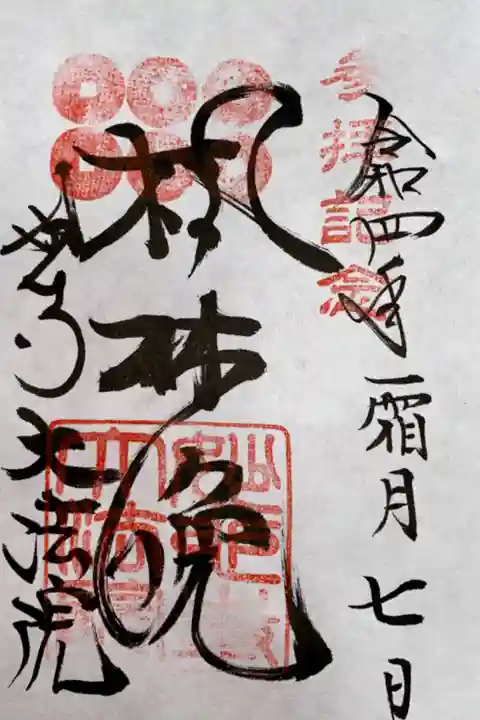 参拝記念
令和四年霜月七日
楓林晩
大法院